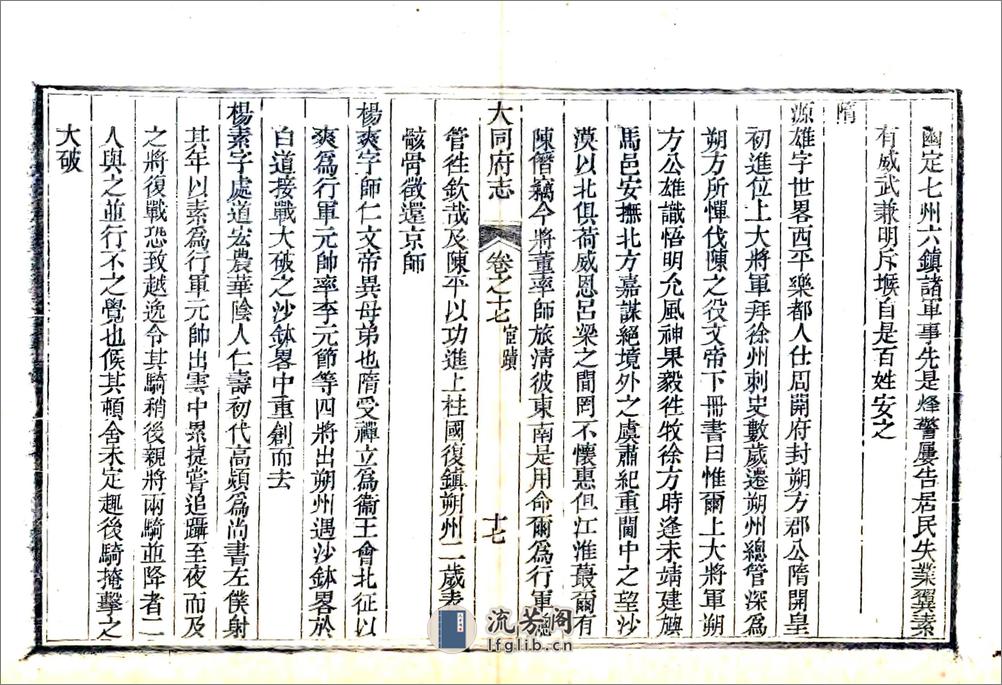 幽定七州六鎮諸軍事先是烽警屢告居民失業翼素
有威武兼明斥堠自是百姓安之
隋
源雄字世畧西平樂都人仕周開府封朔方郡公隋開皇
初進位上大將軍拜徐州刺史數歲遷朔州總管深為
朔方所憚伐陳之役文帝下冊書曰惟爾上大將軍朔
方公雄識悟明允風神果毅徃牧徐方時逢未靖建旟
馬邑安撫北方嘉謀絕境外之虞肅紀重閫中之望沙
漠以北俱荷威恩呂梁之間罔不懷惠但江淮蕞爾有
陳僭竊今將董率師旅淸彼東南是用命爾爲行軍總
大同府志
卷之十七
宦蹟
十七
管徃欽哉及陳平以功進上柱國復鎮朔州二歲表
骸骨徵還京師
楊爽字師仁文帝異母弟也隋受禪立爲衞王會北征以
爽爲行軍元帥率李元節等四將出朔州遇沙鉢畧於
白道接戰大破之沙鉢畧中重創而去
楊素字處道宏農華陰人仁壽初代高熲爲尚書左僕射
其年以素爲行軍元帥出雲中累捷嘗追躡至夜而及
之將復戰恐致越逸令其騎稍後親將兩騎並降者二
人與之並行不之覺也候其頓舍未定趣後騎掩擊之
大破
流芳阁
lfglib.cn